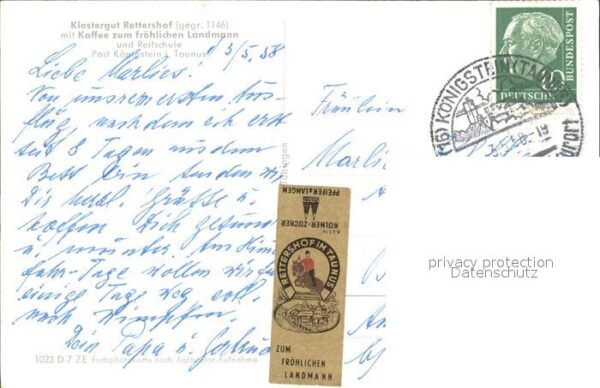 Klostergut Rettershof (gegr. 1146)
mit Kaffee zum fröhlichen Landmann
und Reitschule
Post Königstein i. Taunus
3/5.58
Liebe Marlies!
Von unserem ersten Aus-
flug, nachdem ich erst
seit 8 Tagen aus dem
Bett bin senden wir
Dir herzl. Grüsse u.
hoffen Dich gesund
u. munter. Am Himmel-
fahr-Tage wollen wir
einige Tage weg evtl.
nach Wimpfen.
Dein Papa u. Gertrud
1023 D 7 ZE Farbphotokarte nach Agfacolor-Aufnahme
Fräulein
DEUTSCHE
BUNDESPOST
(16) KÖNIGSTEIN (TAUNUS)
3.5.58.-19
Kurort
privacy protection
Datenschutz
PFEIFER & LANGEN
KÖLNER-ZUCKER
RETTERSHOF IM TAUNUS
ZUM
FRÖHLICHEN
LANDMANN